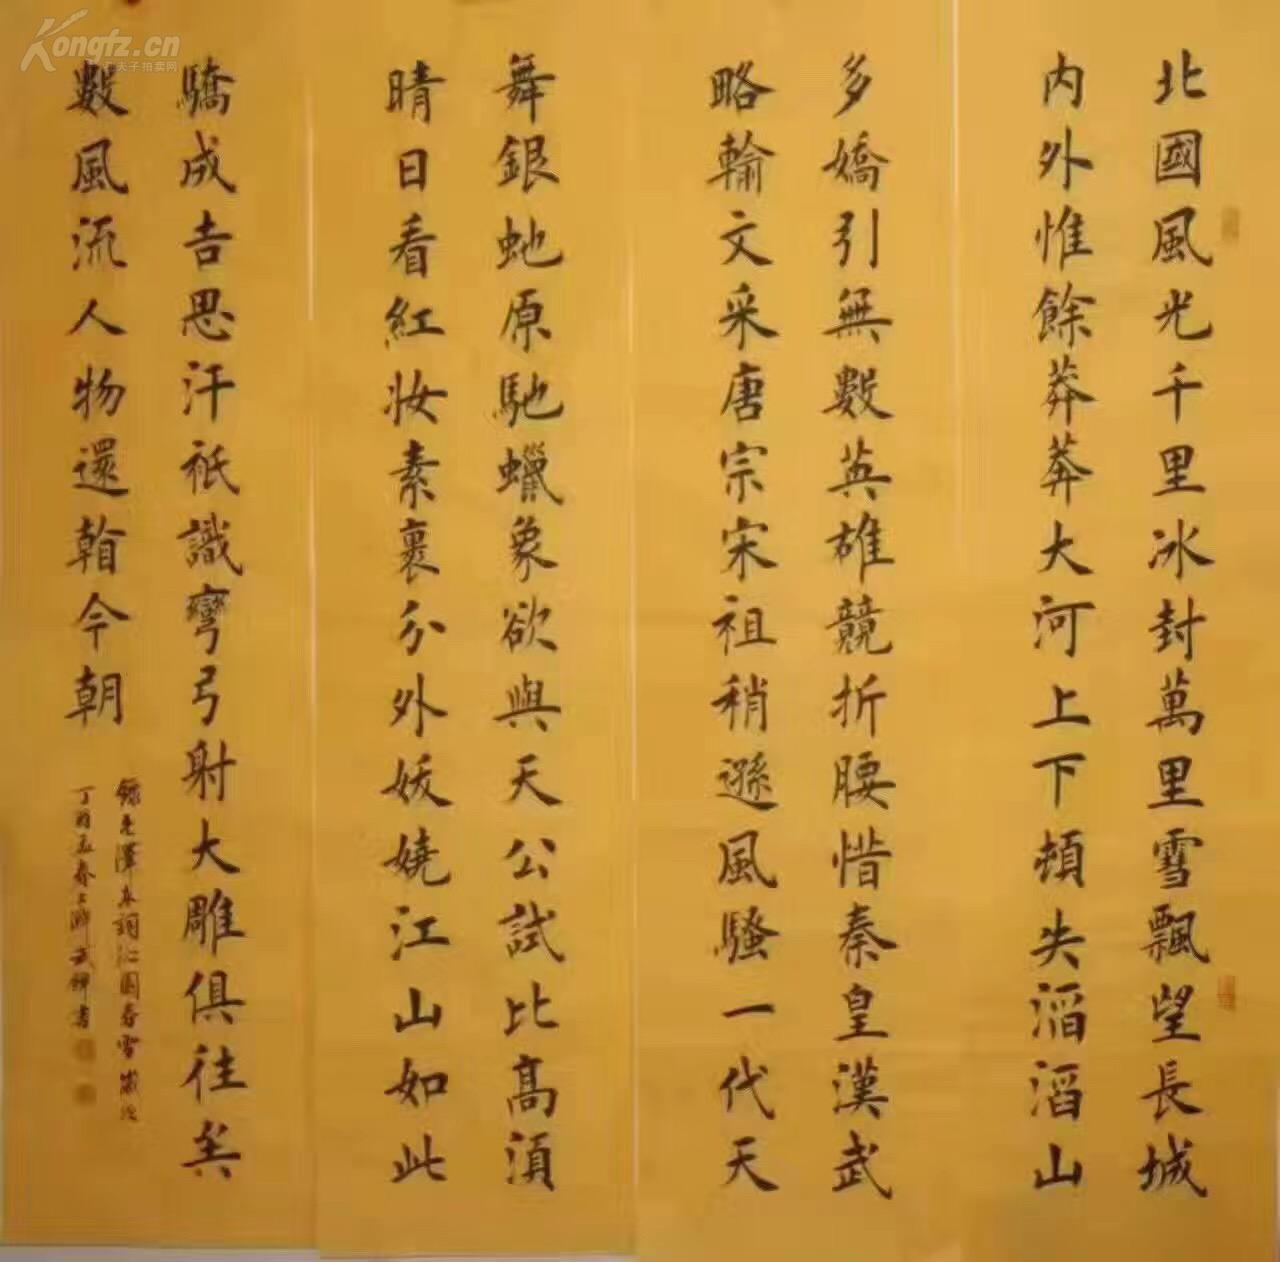 北國風光千里冰封萬里雪飄望長城
内外惟餘莽莽大河上下頓失滔滔山
多嬌引無數英雄競折腰惜秦皇漢武
略輸文采唐宗宋祖稍遜風騷一代天
舞銀虵原馳蠟象欲與天公試比高須
晴日看紅妆素裹分外妖嬈江山如此
驕成吉思汗祗識彎弓射大雕俱往矣
數風流人物還看今朝
錄毛澤東詞沁園春雪歲次
丁酉孟春上澣武書
Kongfz.cn
孔夫子拍卖网